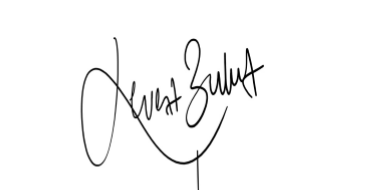 Levent Bulut